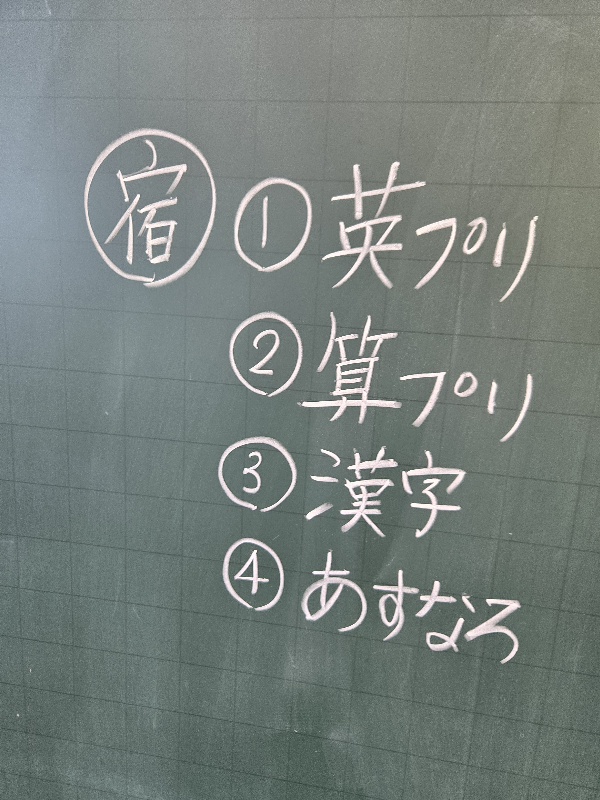 宿 ① 英プリ
② 算プリ
③ 漢字
④ あすなろ